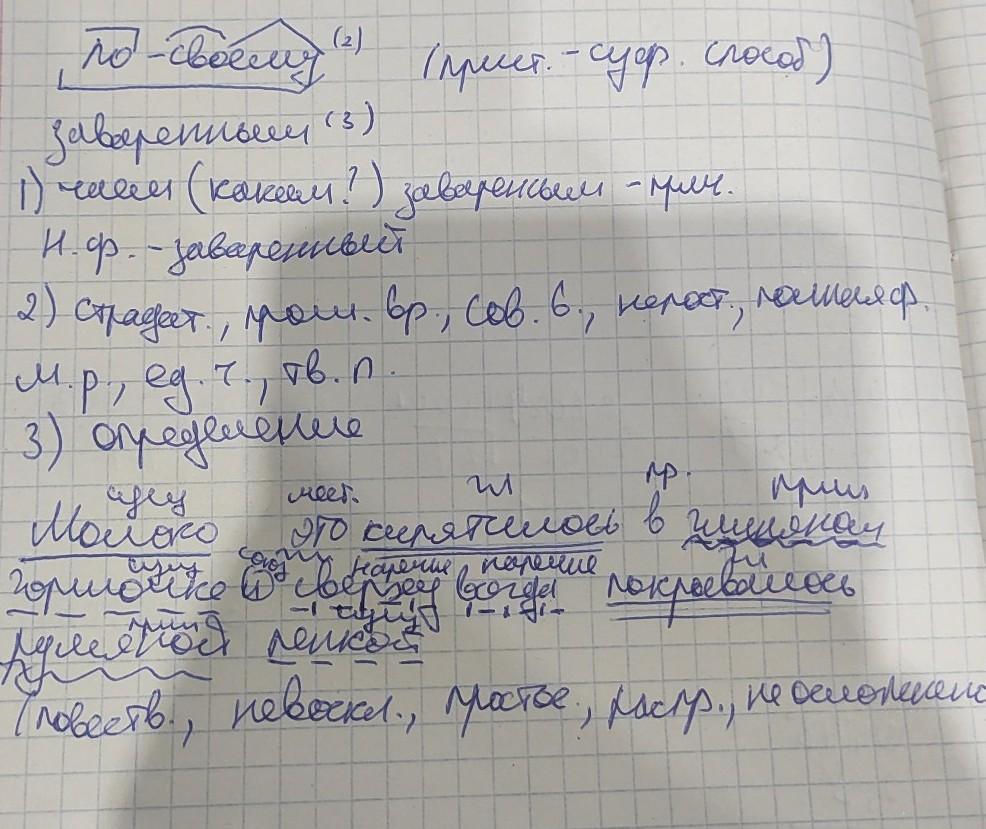 по-своему (2) (прист. - суф. способ)
заваренным (3)
1) чаем (каким?) заваренным - прич.
Н.ф. - заваренный
2) страдат., прош. вр., сов. в., непост., полная ф.
м.р., ед. ч., тв. п.
3) определение
сущ мест. гл пр. прил
Молоко это кипятилось в глиняном
сущ союз наречие наречие гл
горшочке и сверху всегда покрывалось
прил сущ
румяной пенкой
(повеств., невоскл., простое, распр., не осложнено